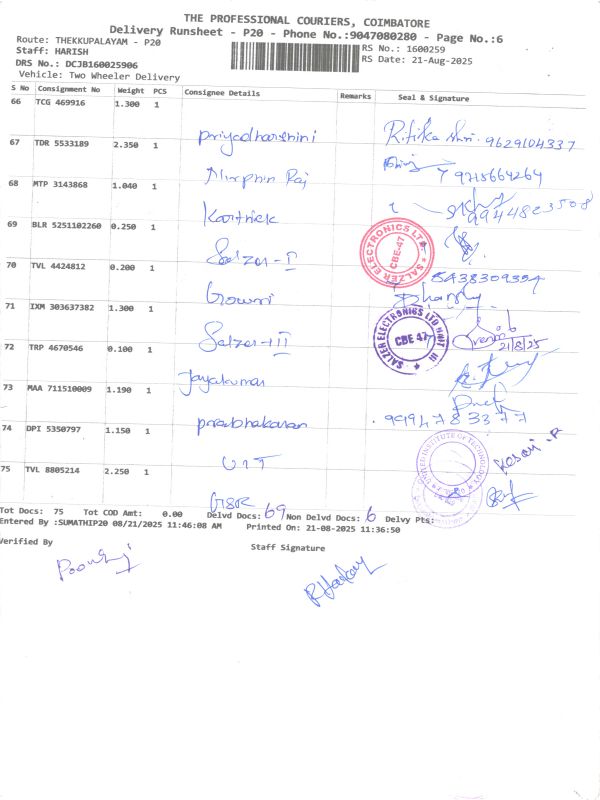 THE PROFESSIONAL COURIERS, COIMBATORE
Delivery Runsheet - P20 - Phone No.:9047080280 - Page No.:6
Route: THEKKUPALAYAM - P20
RS No.: 1600259
Staff: HARISH
RS Date: 21-Aug-2025
DRS No.: DCJB160025906
Vehicle: Two Wheeler Delivery
S No Consignment No Weight PCS Consignee Details Remarks Seal & Signature
66 TCG 469916 1.300 1
Priyadharshini 9629104337
67 TDR 5533189 2.350 1
Raj 9715664264
68 MTP 3143868 1.040 1
Karthick 9944823508
69 BLR 5251102260 0.250 1
Salzer-II
SALZER ELECTRONICS LTD
CBE-47
70 TVL 4424812 0.200 1
Gowri
71 IXM 303637382 1.300 1
Salzer-III
SALZER ELECTRONICS LTD UNIT III
CBE 47
21/8/25
72 TRP 4670546 0.100 1
Jayakumar
73 MAA 711510009 1.190 1
prabhakaran 9994783377
74 DPI 5350797 1.150 1
UIT
UNITED INSTITUTE OF TECHNOLOGY
75 TVL 8805214 2.250 1
GSR
Tot Docs: 75 Tot COD Amt: 0.00 Delvd Docs: 69 Non Delvd Docs: 6 Delvy Pts:
Entered By :SUMATHIP20 08/21/2025 11:46:08 AM Printed On: 21-08-2025 11:36:50
Verified By
Staff Signature